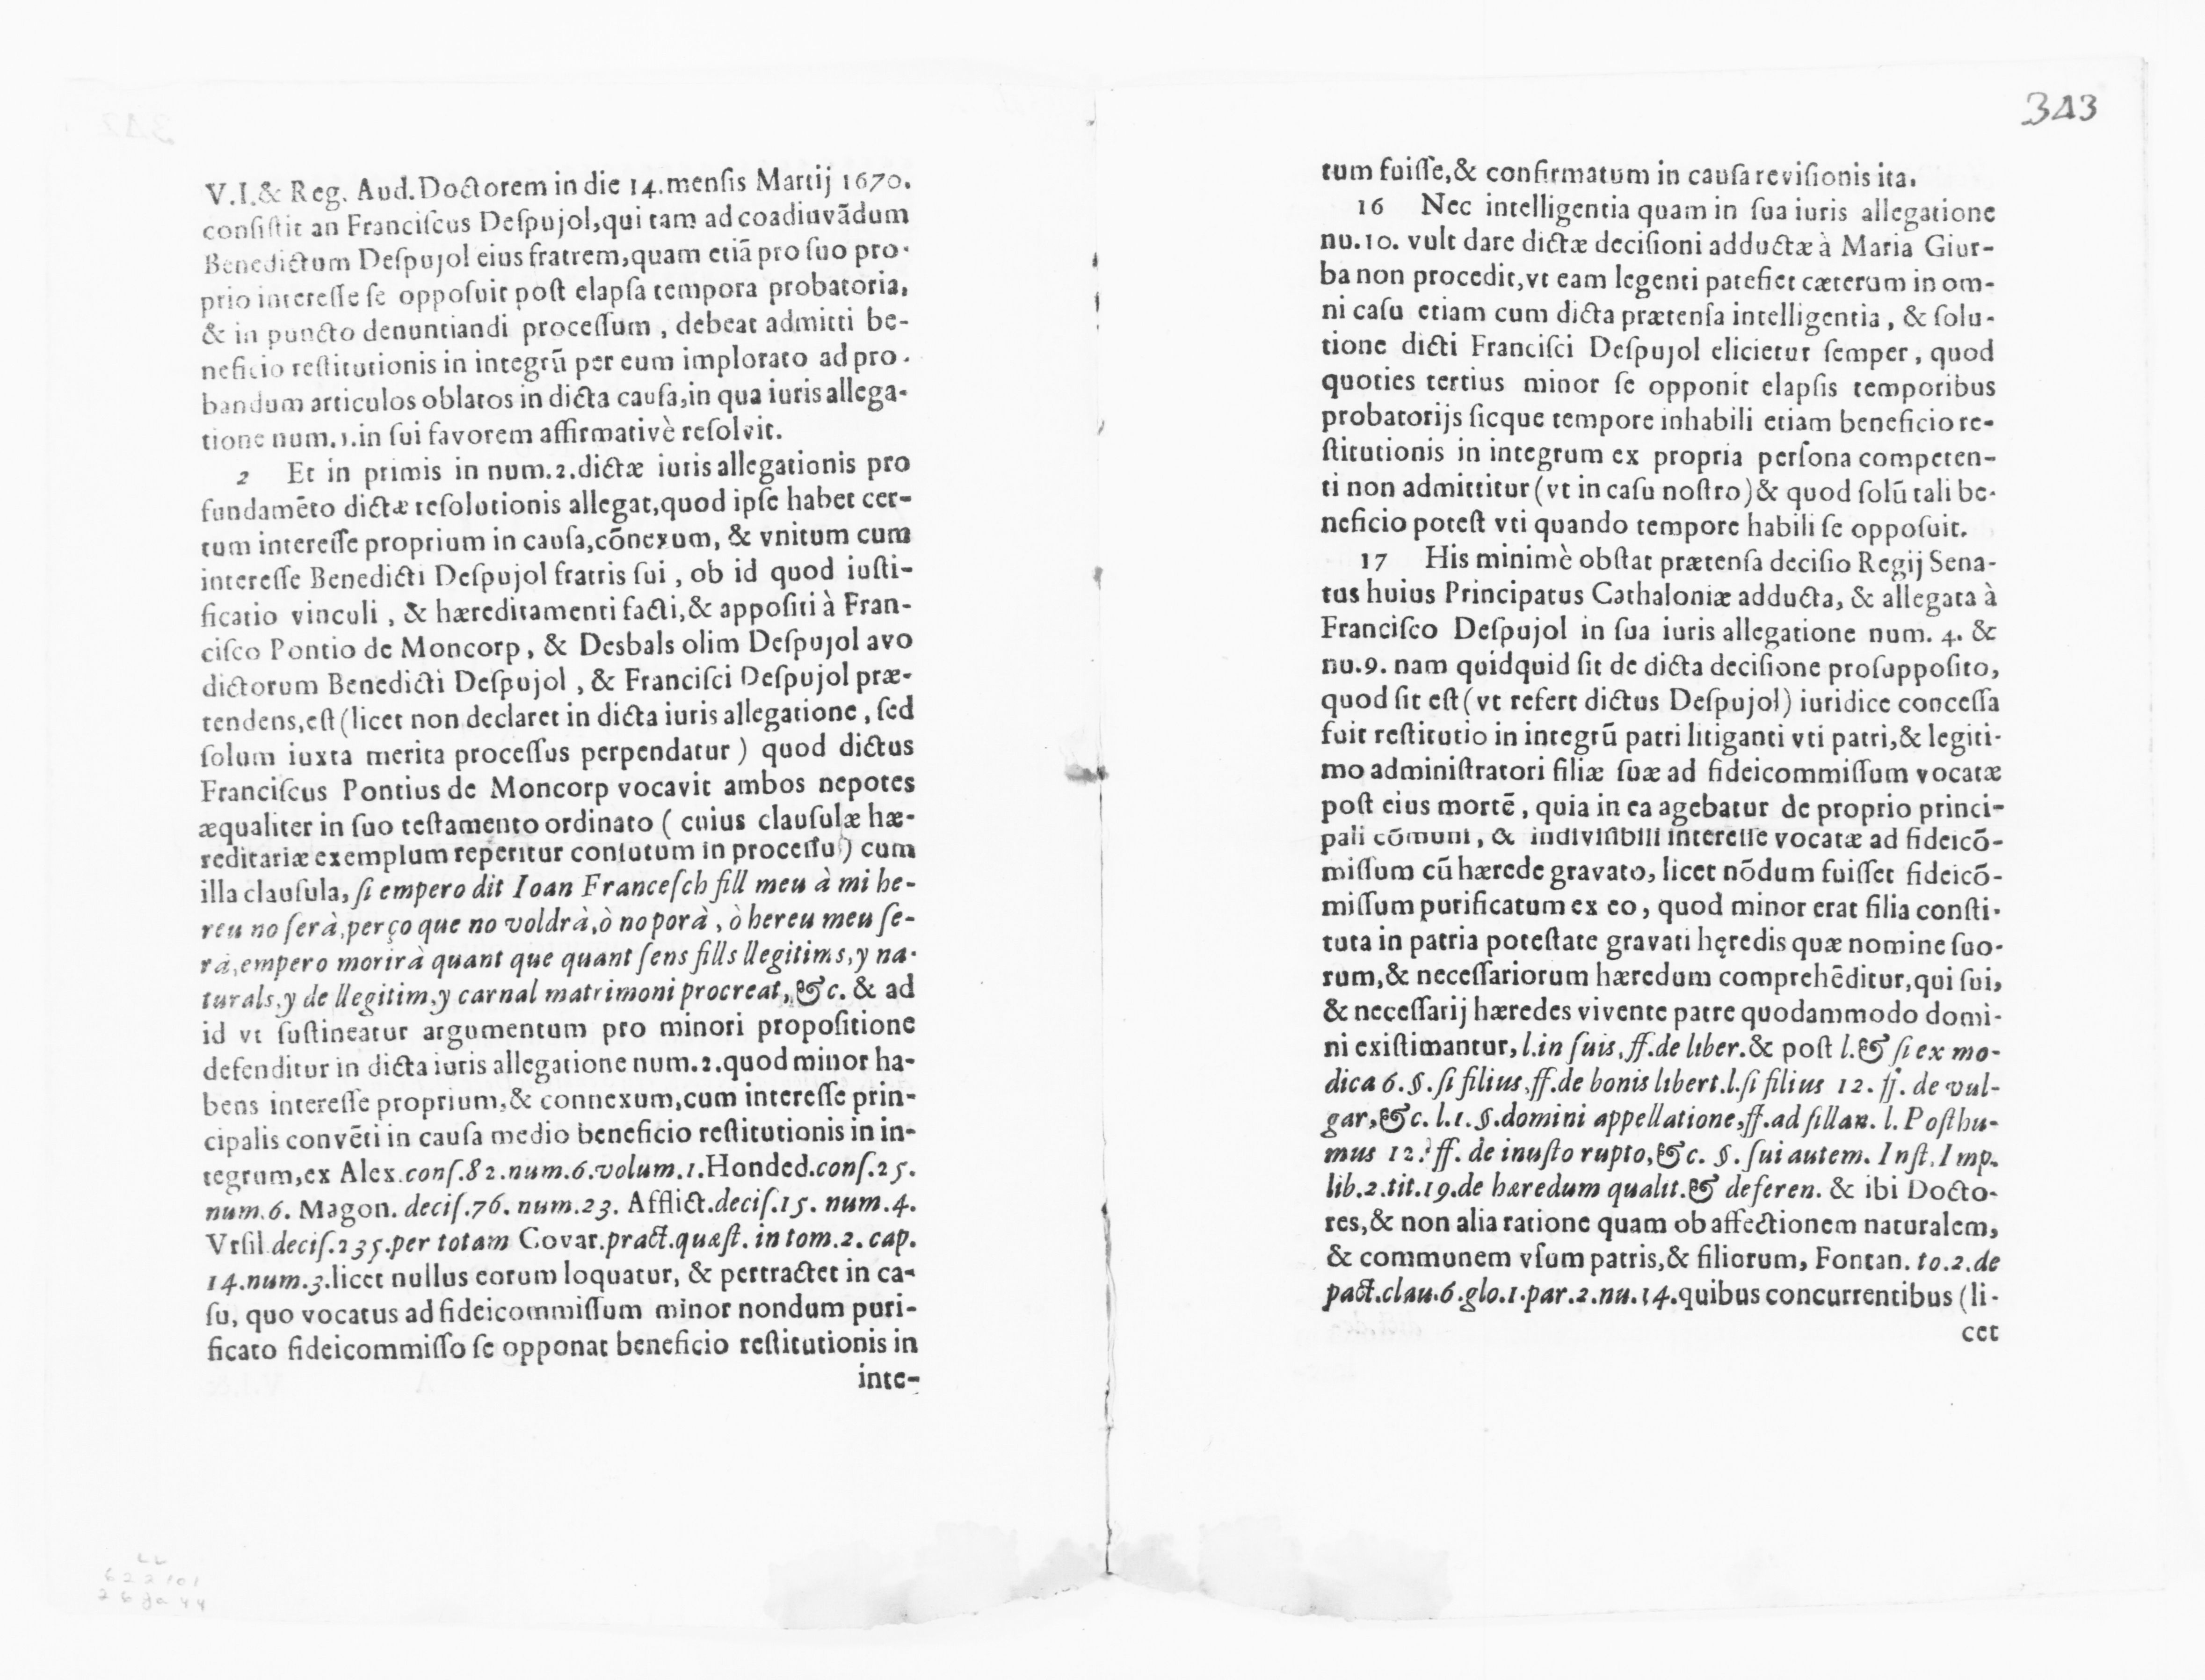 V.I.& Reg. Aud.Doctorem in die 14.mensis Martij 1670.
consistit an Franciscus Despujol,qui tam ad coadiuvãdum
Benedictum Despujol eius fratrem,quam etiã pro suo pro-
prio interesse se opposuit post elapsa tempora probatoria,
& in puncto denuntiandi processum , debeat admitti be-
neficio restitutionis in integrũ per eum implorato ad pro-
bandum articulos oblatos in dicta causa,in qua iuris allega-
tione num.1.in sui favorem affirmativè resolvit.
2 Et in primis in num.2.dictæ iuris allegationis pro
fundamẽto dictæ resolutionis allegat,quod ipse habet cer-
tum interesse proprium in causa,cõnexum, & vnitum cum
interesse Benedicti Despujol fratris sui , ob id quod iusti-
ficatio vinculi , & hæreditamenti facti,& appositi à Fran-
cisco Pontio de Moncorp , & Desbals olim Despujol avo
dictorum Benedicti Despujol , & Francisci Despujol præ-
tendens,est (licet non declaret in dicta iuris allegatione , sed
solum iuxta merita processus perpendatur ) quod dictus
Franciscus Pontius de Moncorp vocavit ambos nepotes
æqualiter in suo testamento ordinato ( cuius clausulæ hæ-
reditariæ exemplum reperitur consutum in processu ) cum
illa clausula, si empero dit Ioan Francesch fill meu à mi he-
reu no serà,per ço que no voldrà,ò no porà , ò hereu meu se-
rà,empero morirà quant que quant sens fills llegitims,y na-
turals,y de llegitim,y carnal matrimoni procreat,&c. & ad
id vt sustineatur argumentum pro minori propositione
defenditur in dicta iuris allegatione num.2.quod minor ha-
bens interesse proprium,& connexum,cum interesse prin-
cipalis convẽti in causa medio beneficio restitutionis in in-
tegrum,ex Alex.cons.82.num.6.volum.1.Honded.cons.25.
num.6. Magon. decis.76. num.23. Afflict.decis.15. num.4.
Vrsil.decis.235.per totam Covar.pract.quæst. in tom.2. cap.
14.num.3.licet nullus eorum loquatur, & pertractet in ca-
su, quo vocatus ad fideicommissum minor nondum puri-
ficato fideicommisso se opponat beneficio restitutionis in
inte-
343
tum fuisse,& confirmatum in causa revisionis ita.
16 Nec intelligentia quam in sua iuris allegatione
nu.10. vult dare dictæ decisioni adductæ à Maria Giur-
ba non procedit,vt eam legenti patefiet cæterum in om-
ni casu etiam cum dicta prætensa intelligentia , & solu-
tione dicti Francisci Despujol elicietur semper , quod
quoties tertius minor se opponit elapsis temporibus
probatorijs sicque tempore inhabili etiam beneficio re-
stitutionis in integrum ex propria persona competen-
ti non admittitur (vt in casu nostro)& quod solũ tali be-
neficio potest vti quando tempore habili se opposuit.
17 His minimè obstat prætensa decisio Regij Sena-
tus huius Principatus Cathaloniæ adducta, & allegata à
Francisco Despujol in sua iuris allegatione num. 4. &
nu.9. nam quidquid sit de dicta decisione prosupposito,
quod sit est (vt refert dictus Despujol) iuridice concessa
fuit restitutio in integrũ patri litiganti vti patri,& legiti-
mo administratori filiæ suæ ad fideicommissum vocatæ
post eius mortẽ , quia in ea agebatur de proprio princi-
pali cõmuni , & indivisibili interesse vocatæ ad fideicõ-
missum cũ hærede gravato, licet nõdum fuisset fideicõ-
missum purificatum ex eo , quod minor erat filia consti-
tuta in patria potestate gravati hęredis quæ nomine suo-
rum,& necessariorum hæredum comprehẽditur,qui sui,
& necessarij hæredes vivente patre quodammodo domi-
ni existimantur, l.in suis, ff.de liber.& post l.& si ex mo-
dica 6. §. si filius,ff.de bonis libert.l.si filius 12. ff. de vul-
gar,&c. l.1. §.domini appellatione,ff.ad sillan. l. Posthu-
mus 12. ff. de inusto rupto,&c. §. sui autem. Inst. Imp.
lib.2.tit.19.de hæredum qualit.& deferen. & ibi Docto-
res,& non alia ratione quam ob affectionem naturalem,
& communem vsum patris,& filiorum, Fontan. to.2.de
pact.clau.6.glo.1.par.2.nu.14.quibus concurrentibus (li-
cet